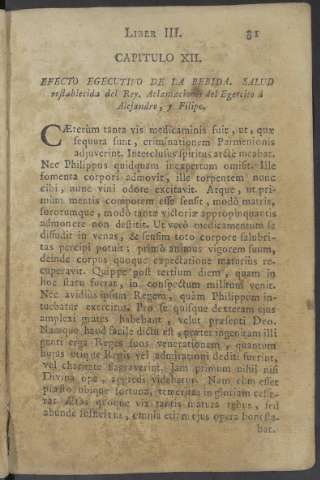 LIBER III. 81
CAPITULO XII.
EFECTO EGECUTIVO DE LA BEBIDA. SALUD
restablecida del Rey. Aclamaciones del Egercito à
Alejandro, y Filipo.
CÆterùm tanta vis medicaminis fuit, ut, quæ
sequuta sunt, criminationem Parmenionis
adjuverint. Interclusus spiritus arctè meabat.
Nec Philippus quidquam inexpertum omisit. Ille
fomenta corpori admovit, ille torpentem nunc
cibi, nunc vini odore excitavit. Atque, ut pri-
mùm mentis compotem esse sensit, modò matris,
sororumque, modò tantæ victoriæ appropinquantis
admonere non destitit. Ut verò medicamentum se
diffudit in venas, & sensim toto corpore salubri-
tas percipi potuit; primò animus vigorem suum,
deinde corpus quoque expectatione maturiùs re-
cuperavit. Quippe post tertium diem, quam in
hoc statu fuerat, in conspectum militum venit.
Nec avidiùs ipsum Regem, quàm Philippum in-
tuebatur exercitus. Pro se quisque dexteram ejus
amplexi grates habebant, velut præsenti Deo.
Namque haud facilè dictu est, præter ingenitam illi
genti erga Reges suos venerationem, quantum
hujus utique Regis vel admirationi dediti fuerint,
vel charitate flagraverint. Jam primum nihil nisi
Divina ope, aggredi videbatur. Nam cùm esset
præsto ubique fortuna, temeritas in gloriam cesse-
rat. Ætas quoque vix tantis matura rebus, sed
abunde sufficiens, omnia etiam ejus opera honesta-
bat.